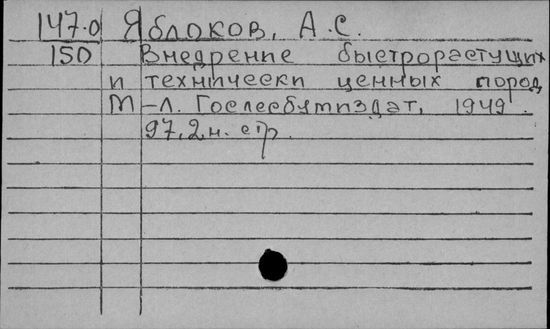 147.0 Яблоков, А.С.
150 Внедрение быстрорастущих
и технически ценных пород
М-Л. Гослесбумиздат, 1949.
97,2 н. стр.